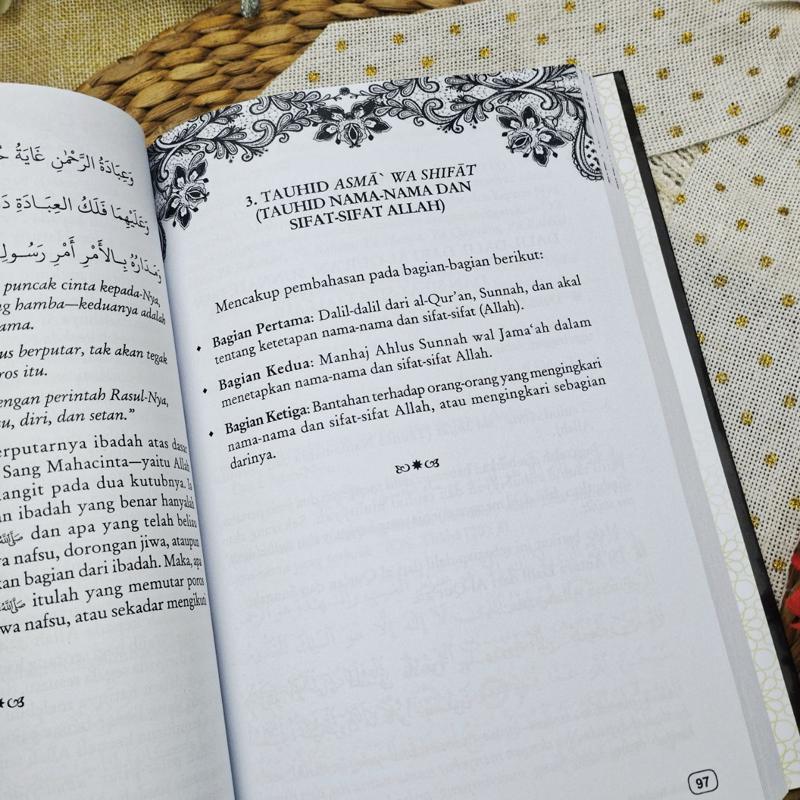 وَعِبَادَةُ الرَّحْمٰنِ غَايَةُ
وَعَلَيْهِمَا فَلَكُ العِبَـادَةِ
وَمَدَارُهُ بِـالأَمْرِ أَمْرِ رَسُـولِـ
puncak cinta kepada-Nya,
hamba—keduanya adalah
berputar, tak akan tegak
itu.
dengan perintah Rasul-Nya,
diri, dan setan.”
berputarnya ibadah atas dasar
Sang Mahacinta—yaitu Allah
langit pada dua kutubnya. Ia
ibadah yang benar hanyalah
ﷺ dan apa yang telah beliau
nafsu, dorongan jiwa, ataupun
bagian dari ibadah. Maka, apa
ﷺ itulah yang memutar poros
nafsu, atau sekadar mengikuti
3. TAUHID ASMĀ` WA SHIFĀT
(TAUHID NAMA-NAMA DAN
SIFAT-SIFAT ALLAH)
Mencakup pembahasan pada bagian-bagian berikut:
• Bagian Pertama: Dalil-dalil dari al-Qur’an, Sunnah, dan akal
tentang ketetapan nama-nama dan sifat-sifat (Allah).
• Bagian Kedua: Manhaj Ahlus Sunnah wal Jama‘ah dalam
menetapkan nama-nama dan sifat-sifat Allah.
• Bagian Ketiga: Bantahan terhadap orang-orang yang mengingkari
nama-nama dan sifat-sifat Allah, atau mengingkari sebagian
darinya.
97